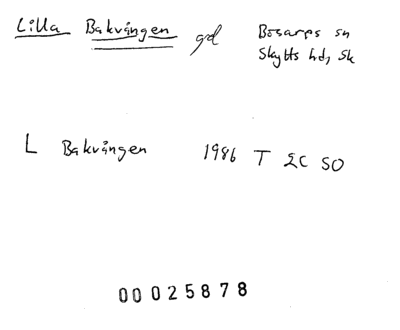 Lilla Bakvången gd Bösarps sn
Skytts hd, Sk
L Bakvången 1986 T 2C SO
00025878